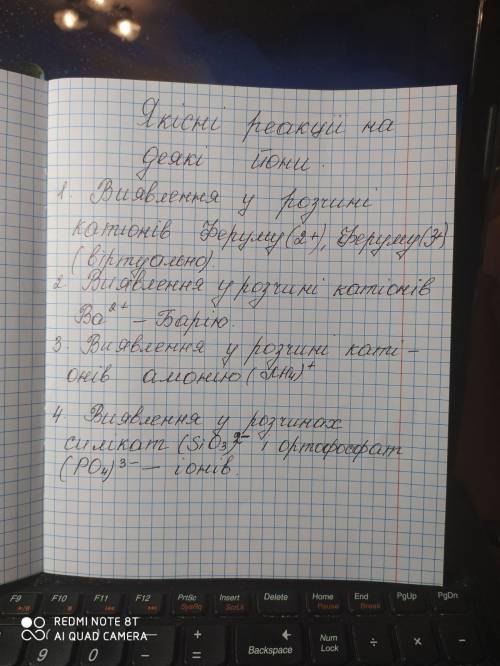 Якісні реакції на
деякі йони.
1. Виявлення у розчині
катіонів Феруму(2+), Феруму(3+)
(віртуально).
2. Виявлення у розчині катіонів
Ba²⁺ – Барію.
3. Виявлення у розчині каті-
онів амонію (NH₄)⁺
4. Виявлення у розчинах
силікат (SiO₃)²⁻ і ортофосфат
(PO₄)³⁻ – іонів.
F9 F10 F11 F12 PrtSc SysRq Insert ScrLk Delete Home Pause End Break PgUp PgDn
9 0 - _ + = Backspace Num Lock ÷ × -
REDMI NOTE 8T
AI QUAD CAMERA